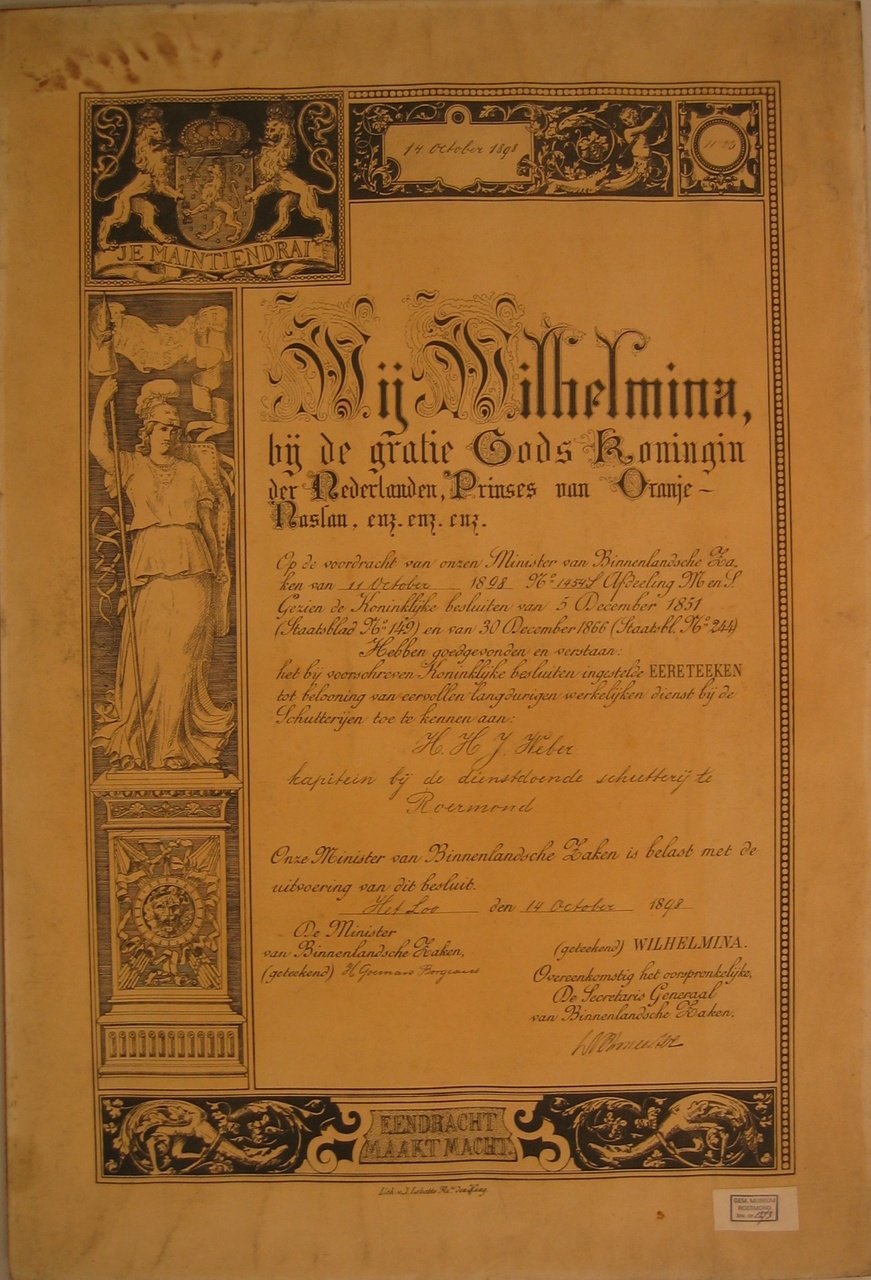 14 October 1898
JE MAINTIENDRAI
Wij Wilhelmina,
bij de gratie Gods Koningin
der Nederlanden, Prinses van Oranje-
Nassau. enz. enz. enz.
Op de voordracht van onzen Minister van Binnenlandsche Za-
ken van 11 October 1898 No. 1454S Afdeeling M en S
Gezien de Koninklijke besluiten van 5 December 1851
(Staatsblad No. 149) en van 30 December 1866 (Staatsbl. No. 244)
Hebben goedgevonden en verstaan:
het bij voorschreven Koninklijke besluiten ingestelde EERETEEKEN
tot belooning van eervollen langdurigen werkelijken dienst bij de
Schutterijen toe te kennen aan:
H. H J. Weber
kapitein bij de dienstdoende schutterij te
Roermond
Onze Minister van Binnenlandsche Zaken is belast met de
uitvoering van dit besluit.
Het Loo den 14 October 1898
De Minister
van Binnenlandsche Zaken,
(geteekend) H Goeman Borgesius
(geteekend) WILHELMINA.
Overeenkomstig het oorspronkelijke,
De Secretaris Generaal
van Binnenlandsche Zaken,
EENDRACHT
MAAKT MACHT.
GEM. MUSEUM
ROERMOND